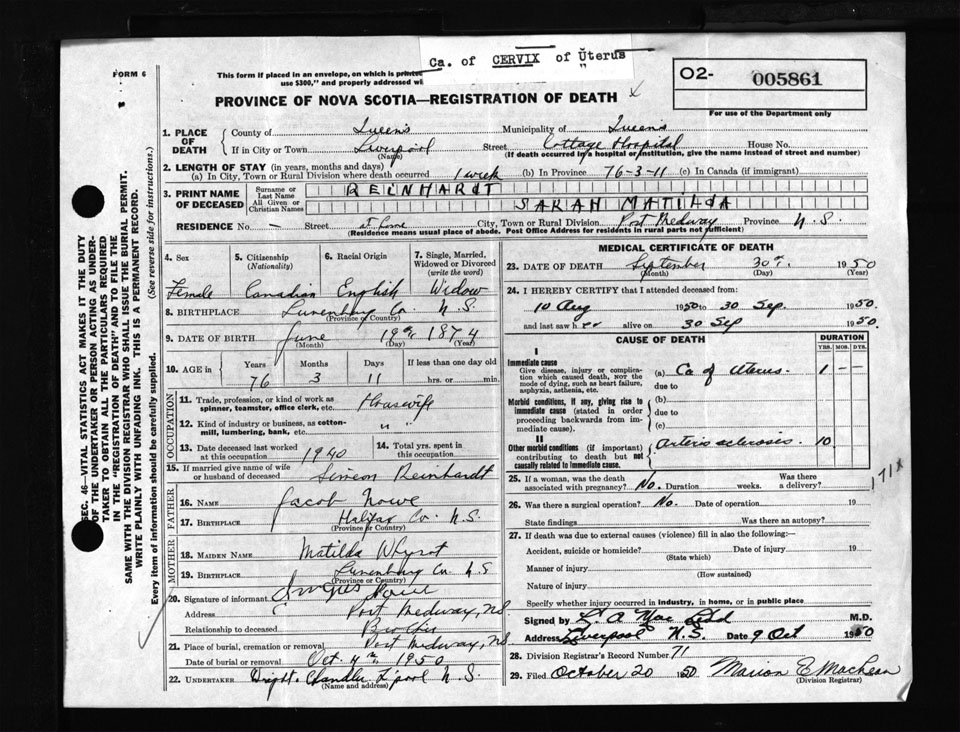 Ca. of CERVIX of Uterus
FORM 6
This form if placed in an envelope, on which is printed
use $300," and properly addressed wi
O2- 005861
PROVINCE OF NOVA SCOTIA—REGISTRATION OF DEATH
For use of the Department only
1. PLACE OF DEATH
County of Queens Municipality of Queens
If in City or Town Liverpool Street Cottage Hospital House No.
(Name) (If death occurred in a hospital or institution, give the name instead of street and number)
2. LENGTH OF STAY (in years, months and days)
(a) In City, Town or Rural Division where death occurred 1 week (b) In Province 76-3-11 (c) In Canada (if immigrant)
3. PRINT NAME OF DECEASED
Surname or Last Name REINHARDT
All Given or Christian Names SARAH MATILDA
RESIDENCE No. — Street at home City, Town or Rural Division Port Medway Province N.S.
(Residence means usual place of abode. Post Office Address for residents in rural parts not sufficient)
4. Sex
5. Citizenship (Nationality)
6. Racial Origin
7. Single, Married, Widowed or Divorced (write the word)
Female Canadian English Widow
8. BIRTHPLACE Lunenburg Co. N.S.
(Province or Country)
9. DATE OF BIRTH June 19th 1874
(Month) (Day) (Year)
10. AGE in Years Months Days If less than one day old
76 3 11 hrs. or min.
OCCUPATION
11. Trade, profession, or kind of work as spinner, teamster, office clerk, etc. Housewife
12. Kind of industry or business, as cotton-mill, lumbering, bank, etc. "
13. Date deceased last worked at this occupation 1940
14. Total yrs. spent in this occupation
15. If married give name of wife or husband of deceased Simeon Reinhardt
FATHER
16. NAME Jacob Nowe
17. BIRTHPLACE Halifax Co. N.S.
(Province or Country)
MOTHER
18. MAIDEN NAME Matilda Whynot
19. BIRTHPLACE Lunenburg Co. N.S
(Province or Country)
20. Signature of informant
Address Port Medway, NS
Relationship to deceased Brother
21. Place of burial, cremation or removal Port Medway, NS
Date of burial or removal Oct. 4th 1950
22. UNDERTAKER Wright & Chandler L'pool N.S.
(Name and address)
MEDICAL CERTIFICATE OF DEATH
23. DATE OF DEATH September 30th. 1950
(Month) (Day) (Year)
24. I HEREBY CERTIFY that I attended deceased from:
10 Aug 1950 to 30 Sep 1950.
and last saw her alive on 30 Sep 1950.
CAUSE OF DEATH
DURATION
YRS. MOS. DYS.
I
Immediate cause
Give disease, injury or complication which caused death, not the mode of dying, such as heart failure, asphyxia, asthenia, etc.
(a) Ca of Uterus. 1 — —
due to
Morbid conditions, if any, giving rise to immediate cause (stated in order proceeding backwards from immediate cause).
(b)
due to
(c)
II
Other morbid conditions (if important) contributing to death but not causally related to immediate cause.
Arteriosclerosis. 10
171x
25. If a woman, was the death associated with pregnancy? No. Duration weeks. Was there a delivery?
26. Was there a surgical operation? No. Date of operation 19
State findings Was there an autopsy?
27. If death was due to external causes (violence) fill in also the following:—
Accident, suicide or homicide? Date of injury 19
(State which)
Manner of injury
(How sustained)
Nature of injury
Specify whether injury occurred in industry, in home, or in public place
Signed by M.D.
Address Liverpool N.S. Date 9 Oct 1950
28. Division Registrar's Record Number 71
29. Filed October 20 1950 Marion E MacLean
(Division Registrar)
SEC. 46—VITAL STATISTICS ACT MAKES IT THE DUTY
OF THE UNDERTAKER OR PERSON ACTING AS UNDER-
TAKER TO OBTAIN ALL THE PARTICULARS REQUIRED
IN THE "REGISTRATION OF DEATH" AND TO FILE THE
SAME WITH THE DIVISION REGISTRAR WHO SHALL ISSUE THE BURIAL PERMIT.
WRITE PLAINLY WITH UNFADING INK. THIS IS A PERMANENT RECORD.
Every item of information should be carefully supplied. (See reverse side for instructions.)